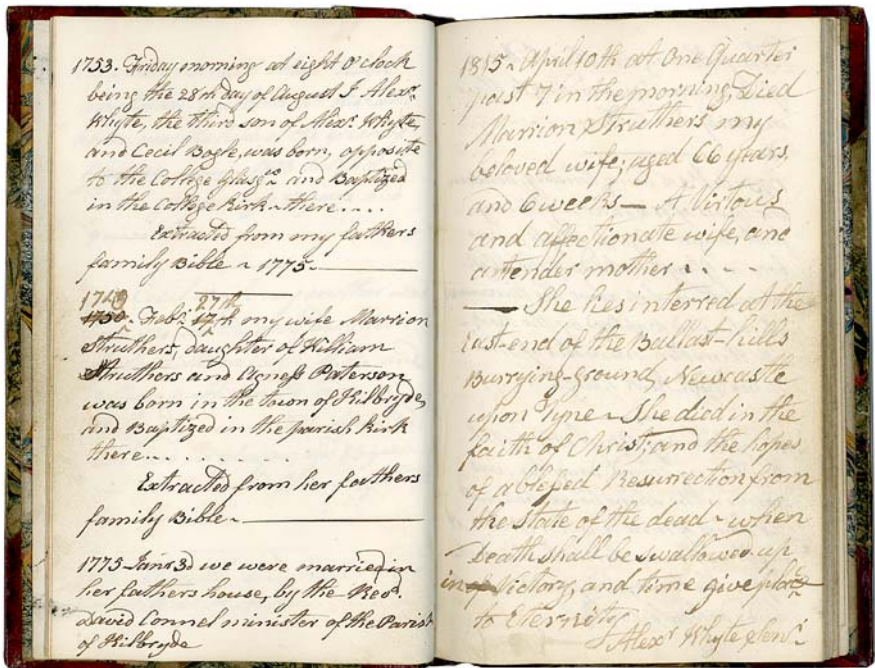 1753. Friday morning at eight O'clock
being the 28th day of August I Alexr.
Whyte, the third son of Alexr. Whyte,
and Cecil Bogle, was born, opposite
to the College Glasgow and Baptized
in the College Kirk ~ there....
Extracted from my fathers
family Bible ~ 1775 ~
1749 27th
1750. Febr. 17th my wife Marrion
Struthers, daughter of William
Struthers and Agness Paterson
was born in the town of Kilbryde,
and Baptized in the parish kirk
there.........
Extracted from her fathers
family Bible ~
1775 Janr 3d we were married in
her fathers house, by the Revd.
David Connel minister of the Parish
of Kilbryde
1815 ~ April 10th at One Quarter
past 7 in the morning, Died
Marrion Struthers my
beloved wife; aged 66 years,
and 6 weeks — A Virtous
and affectionate wife, and
a tender mother ....
— She lies interred at the
east-end of the Ballast-hills
Burrying-ground, Newcastle
upon Tyne ~ She died in the
faith of Christ; and the hopes
of a blessed Resurrection from
the state of the dead ~ when
Death shall be swallowed up
in Victory, and time give place
to Eternity
Alexr Whyte Senr.